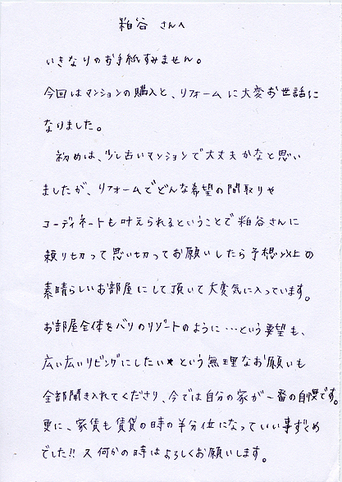 粕谷 さんへ
いきなりのお手紙すみません。
今回はマンションの購入と、リフォームに大変お世話に
なりました。
初めは、少し古いマンションで大丈夫かなと思い
ましたが、リフォームでどんな希望の間取りや
コーディネートも叶えられるということで粕谷さんに
頼りきって思い切ってお願いしたら予想以上の
素晴らしいお部屋にして頂いて大変気に入っています。
お部屋全体をバリのリゾートのように…という要望も、
広い広いリビングにしたい★という無理なお願いも
全部聞き入れてくださり、今では自分の家が一番の自慢です。
更に、家賃も賃貸の時の半分位になっていい事ずくめ
でした!!又何かの時はよろしくお願いします。